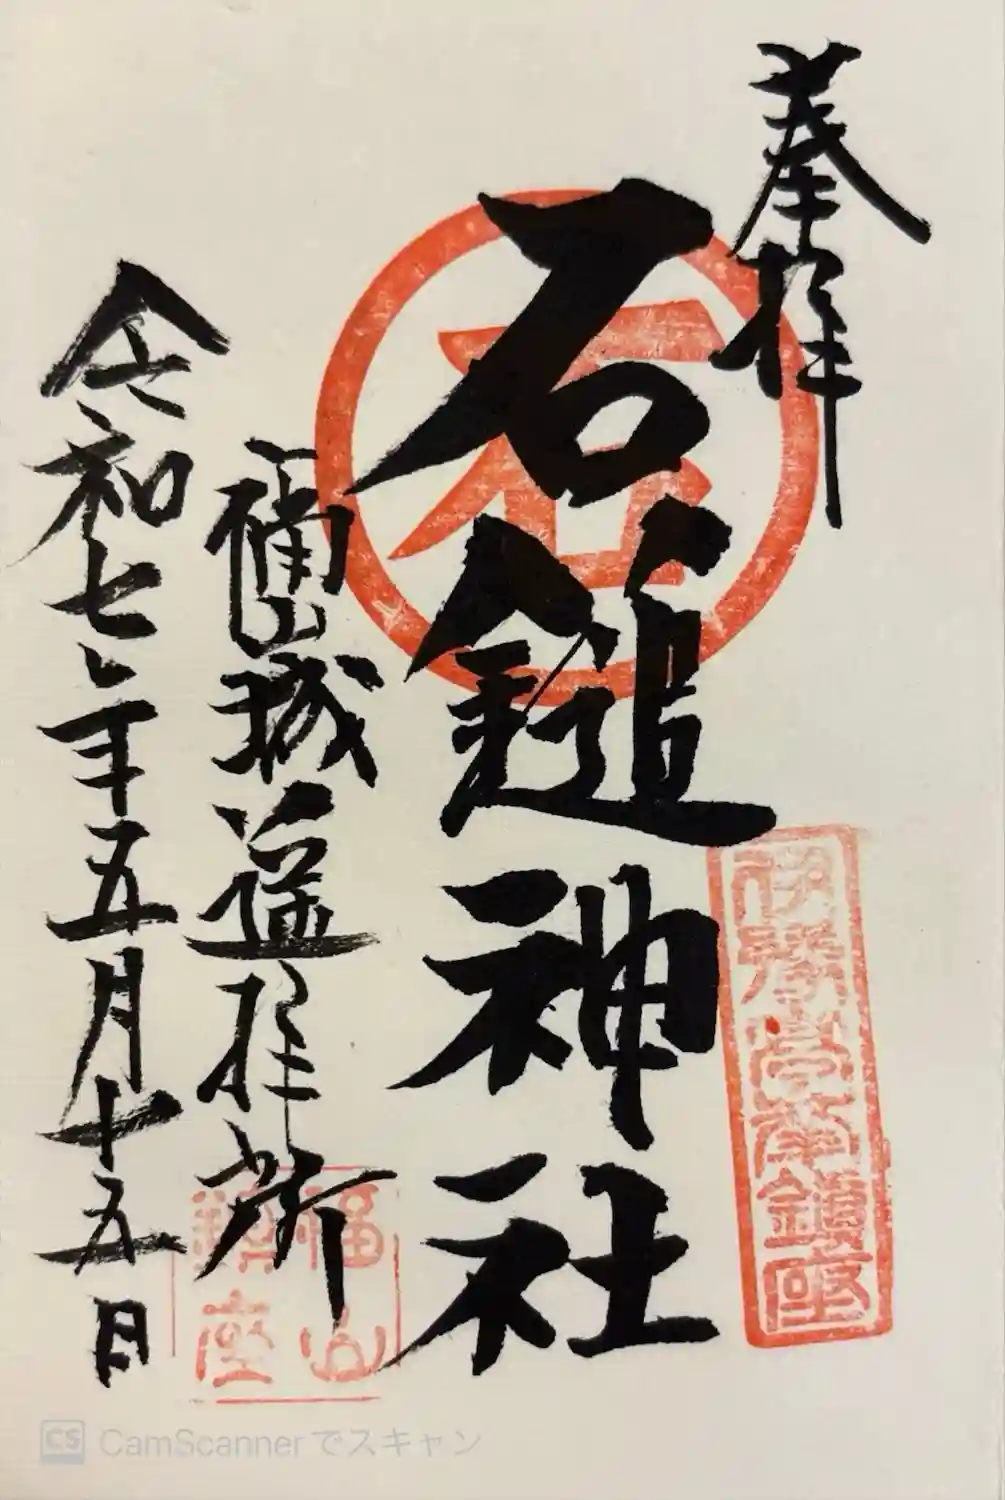 奉拝
石鎚神社
石
伊豫高峯鎮座
福山城遥拝所
福山鎮座
令和七年五月十五日
CS CamScannerでスキャン